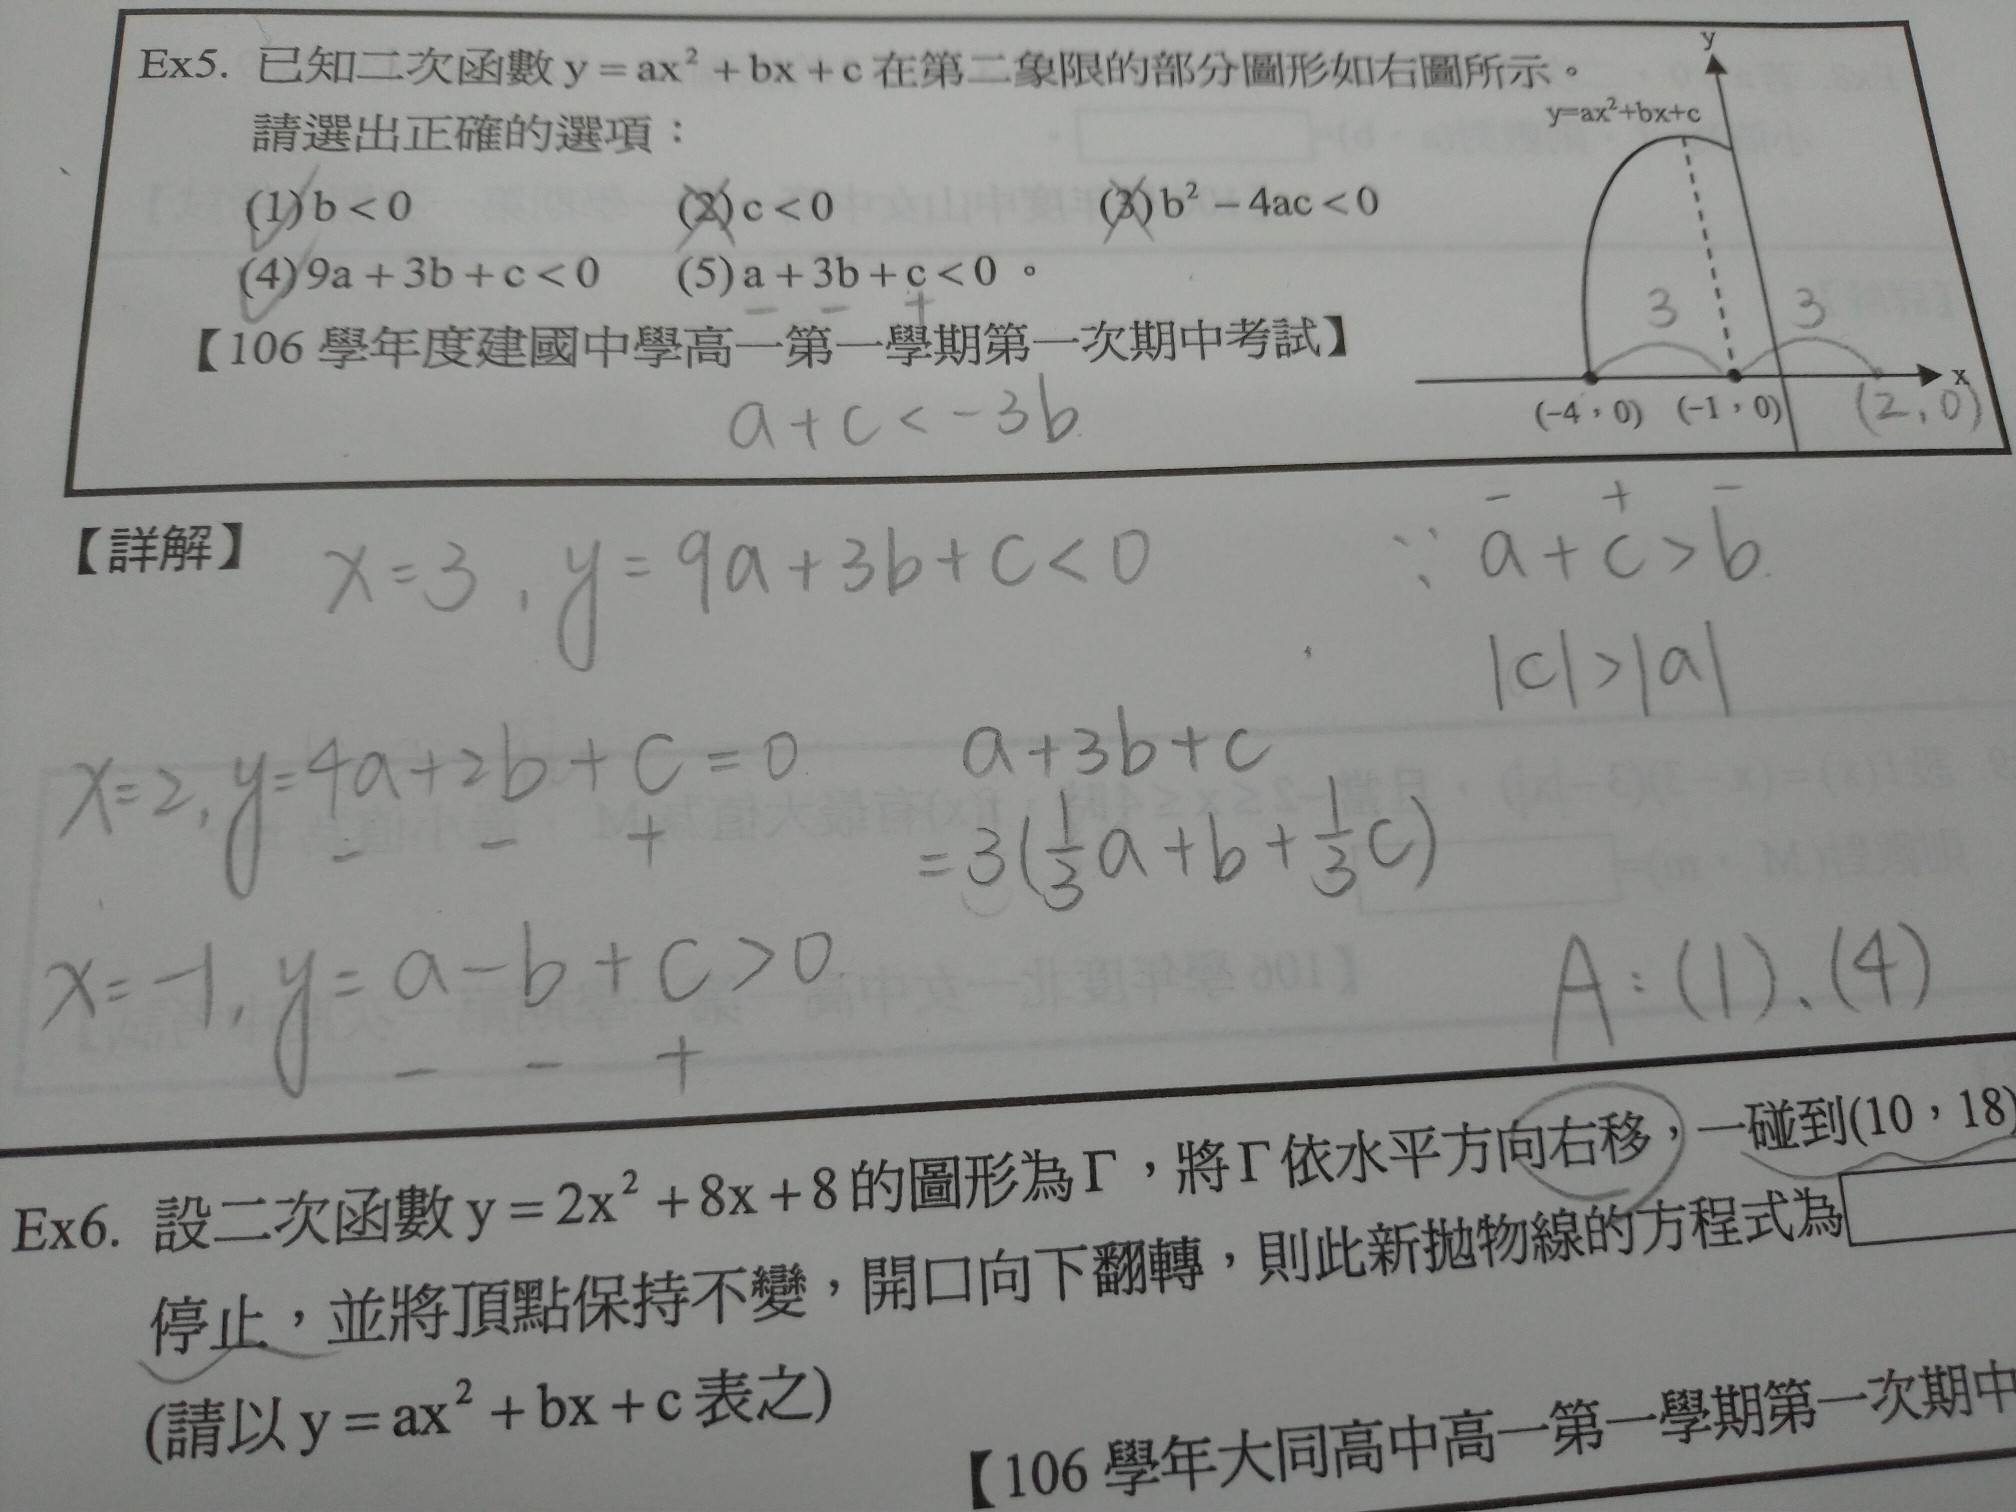 Ex5. 已知二次函數 y = ax² + bx + c 在第二象限的部分圖形如右圖所示。
請選出正確的選項：
(1) b < 0 (2) c < 0 (3) b² − 4ac < 0
(4) 9a + 3b + c < 0 (5) a + 3b + c < 0。
− − +
【106 學年度建國中學高一第一學期第一次期中考試】
a + c < −3b
y
y=ax²+bx+c
3 3
x
(−4，0) (−1，0) (2,0)
【詳解】
x=3, y=9a+3b+c<0
− + −
∵ a+c>b
|c|>|a|
x=2, y=4a+2b+c=0
− − +
a+3b+c
=3(1/3a+b+1/3c)
x=−1, y=a−b+c>0
− − +
A:(1)、(4)
Ex6. 設二次函數 y = 2x² + 8x + 8 的圖形為Γ，將Γ依水平方向右移，一碰到(10，18)
停止，並將頂點保持不變，開口向下翻轉，則此新拋物線的方程式為
(請以 y = ax² + bx + c 表之)
【106 學年大同高中高一第一學期第一次期中